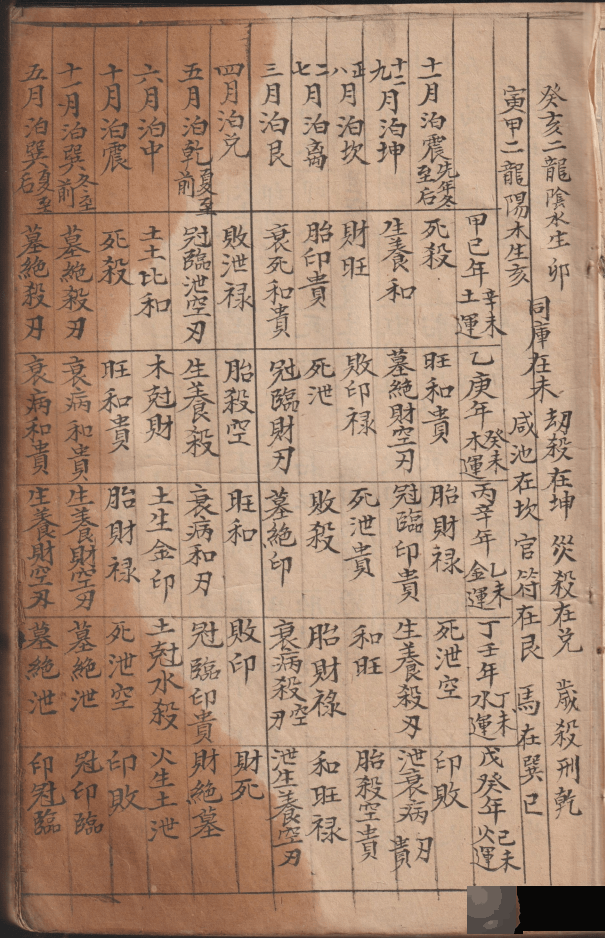 癸亥二龍陰水生卯 同庫在未 劫殺在坤 災殺在兑 歲殺刑乾
寅甲二龍陽木生亥 咸池在坎 官符在艮 馬在巽巳
甲己年土運辛未 乙庚年木運癸未 丙辛年金運乙未 丁壬年水運丁未 戊癸年火運己未
十一月泊震先年冬至后 死殺 旺和貴 胎財禄 死泄空 印敗
十二九月泊坤 生養和 墓絶財空刃 冠臨印貴 生養殺刃 泄衰病刃貴
正八月泊坎 財旺 敗印禄 死泄貴 和旺 胎殺空貴
二七月泊离 胎印貴 死泄 敗殺 胎財禄 和旺禄
三月泊艮 衰死和貴 冠臨財刃 墓絶印 衰病殺空刃 泄生養空刃
四月泊兑 敗泄禄 胎殺空 旺和 敗印 財死
五月泊乾夏至前 冠臨泄空刃 生養殺 衰病和刃 冠臨印貴 財絶墓
六月泊中 土土比和 木尅財 土生金印 土尅水殺 火生土泄
十月泊震 死殺 旺和貴 胎財禄 死泄空 印敗
十一月泊巽冬至前 墓絶殺刃 衰病和貴 生養財空刃 墓絶泄 冠印臨
五月泊巽夏至后 墓絶殺刃 衰病和貴 生養財空刃 墓絶泄 印冠臨